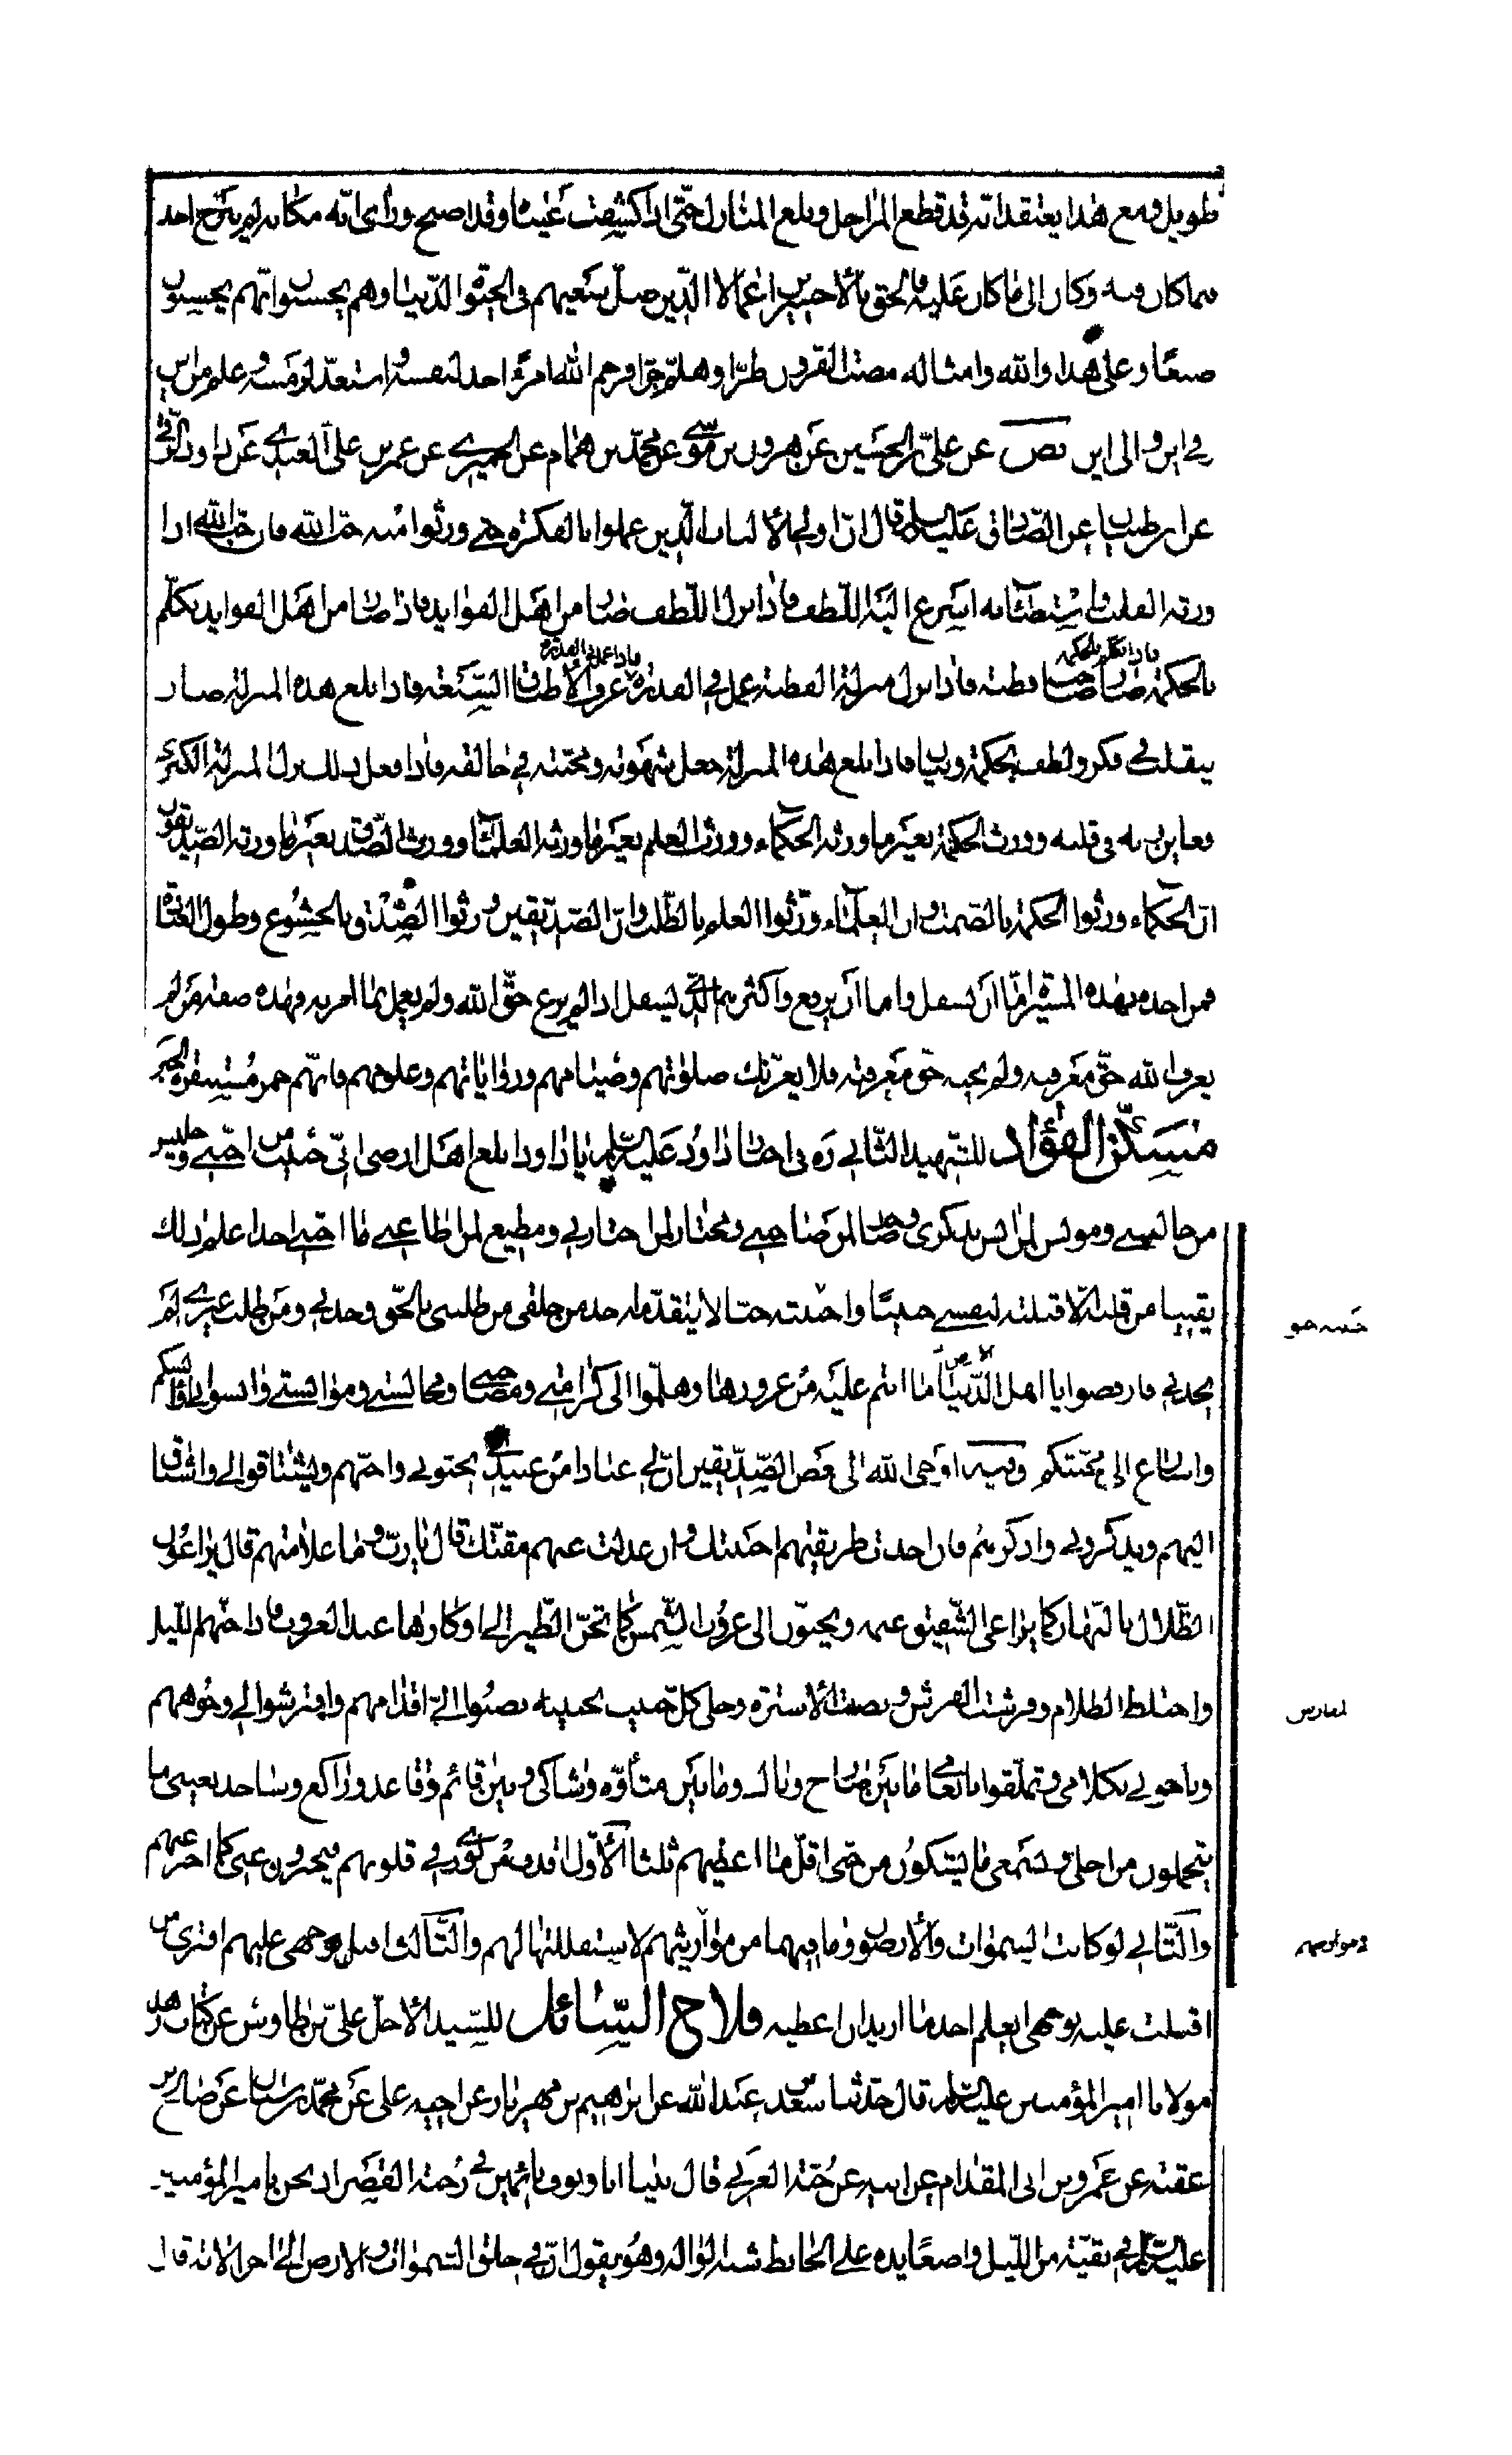 طويل ومع هذا يعتقد انه قد قطع المراحل وبلغ المنازل حتى اذا كشفت عنه وقد اصبح وراى انه مكانه لم يبرح احد
مما كان فيه وكان الى ما كان عليه الحق بالاخسرين اعمالا الذين ضل سعيهم في الحيوة الدنيا وهم يحسبون انهم يحسنون
صنعا وعلى هذا والله وامثاله مضت القرون طرا وهلم جرا فرحم الله امرءا احد لنفسه واستعد لرمسه وعلم من اين
في اين والى اين نص عن علي بن الحسين عن هرون بن موسى عن محمد بن همام عن الحميري عن عمر بن علي العبدي عن داود الرقي
عن ابن ظبيان عن الصادق عليه السلام قال ان اولي الالباب الذين عملوا بالفكرة حتى ورثوا منه حب الله فان حب الله اذا
ورثه القلب واستضاء به اسرع اليه اللطف فاذا نزل اللطف صار من اهل الفوايد فاذا صار من اهل الفوايد تكلم
فاذا تكلم بالحكمة فاذا عمل في القدرة
بالحكمة صار صاحب فطنة فاذا نزل منزلة الفطنة عمل في القدرة عرف الاطباق السبعة فاذا بلغ هذه المنزلة صار
يتقلب في فكر ولطف بحكمة وبيان فاذا بلغ هذه المنزلة جعل شهوته ومحبته في خالقه فاذا فعل ذلك نزل المنزلة الكبرى
فعاين ربه في قلبه وورث الحكمة بغير ما ورثه الحكماء وورث العلم بغير ما ورثه العلماء وورث الصدق بغير ما ورثه الصديقون
ان الحكماء ورثوا الحكمة بالصمت وان العلماء ورثوا العلم بالطلب وان الصديقين ورثوا الصدق بالخشوع وطول العبادة
فمن اخذه بهذه المسيرة اما ان يسفل واما ان يرفع واكثرهم الذي يسفل اذا لم يرع حق الله ولم يعمل بما امر به فهذه صفة من لم
يعرف الله حق معرفته ولم يحبه حق معرفته فلا يغرنك صلوتهم وصيامهم ورواياتهم وعلومهم فانهم حمر مستنفرة الخبر
مسكن الفؤاد للشهيد الثاني ره في اخبار داود عليه السلام يا داود ابلغ اهل ارضي اني حبيب من احبني وجليس
من جالسني ومونس لمن انس بذكري وصاحب لمن صاحبني ومختار لمن اختارني ومطيع لمن اطاعني ما احبني احد اعلم ذلك
يقينا من قلبه الا قبلته لنفسي واحببته حبا لا يتقدمه احد من خلقي من طلبني بالحق وجدني ومن طلب غيري لم
يجدني فارفضوا يا اهل الدنيا ما انتم عليه من غرورها وهلموا الى كرامتي ومصاحبتي ومجالستي ومؤانستي وانسوا بي اوانسكم
واسارع الى محبتكم وفيه اوحى الله الى بعض الصديقين ان لي عبادا من عبيدي يحبوني واحبهم ويشتاقون الي واشتاق
اليهم ويذكروني واذكرهم فان اخذت طريقتهم احببتك وان عدلت عنهم مقتك قال يا رب وما علامتهم قال يراعون
الظلال بالنهار كما يراعي الشفيق غنمه ويحنون الى غروب الشمس كما تحن الطير الى اوكارها عند الغروب فاذا جنهم الليل
واختلط الظلام وفرشت الفرش ونصبت الاسرة وخلى كل حبيب بحبيبه نصبوا الي اقدامهم وافترشوا لي وجوههم
وناجوني بكلامي وتملقوا بانعامي ما بين صارخ وباك وما بين متأوه وشاكي وبين قائم وقاعد وراكع وساجد بعيني ما
يتحملون من اجلي وبسمعي ما يشكون من حبي اقل ما اعطيهم ثلثا الاول اقذف من نوري في قلوبهم فيخبرون عني كما اخبر عنهم
والثاني لو كانت السموات والارض وما فيهما من مواريثهم لاستقللتها لهم والثالث اقبل بوجهي عليهم افترى من
اقبلت عليه بوجهي ايعلم احد ما اريد ان اعطيه فلاح السائل للسيد الاجل علي بن طاوس عن كتاب زهد
مولانا امير المؤمنين عليه السلام قال حدثنا سعد بن عبد الله عن ابرهيم بن مهزيار عن اخيه علي عن محمد بن سنان عن صالح بن
عقبة عن عمرو بن ابي المقدام عن ابيه عن حبة العرني قال بينا انا ونوف نائمين في رحبة القصر اذ نحن بامير المؤمنين
عليه السلام في بقية من الليل واضعا يده على الحائط شبه الواله وهو يقول ان في خلق السموات والارض الى اخر الاية قال